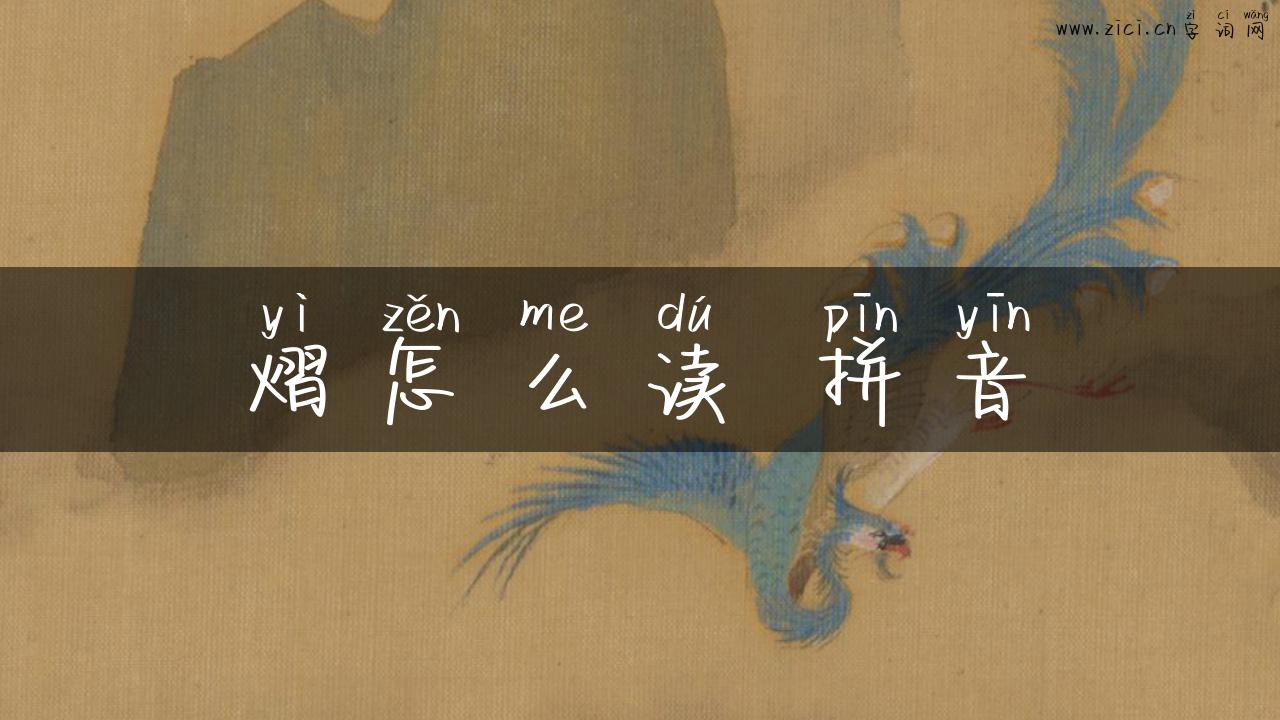 zì cí wǎng
www.zici.cn 字词网
yì zěn me dú pīn yīn
熠怎么读 拼音